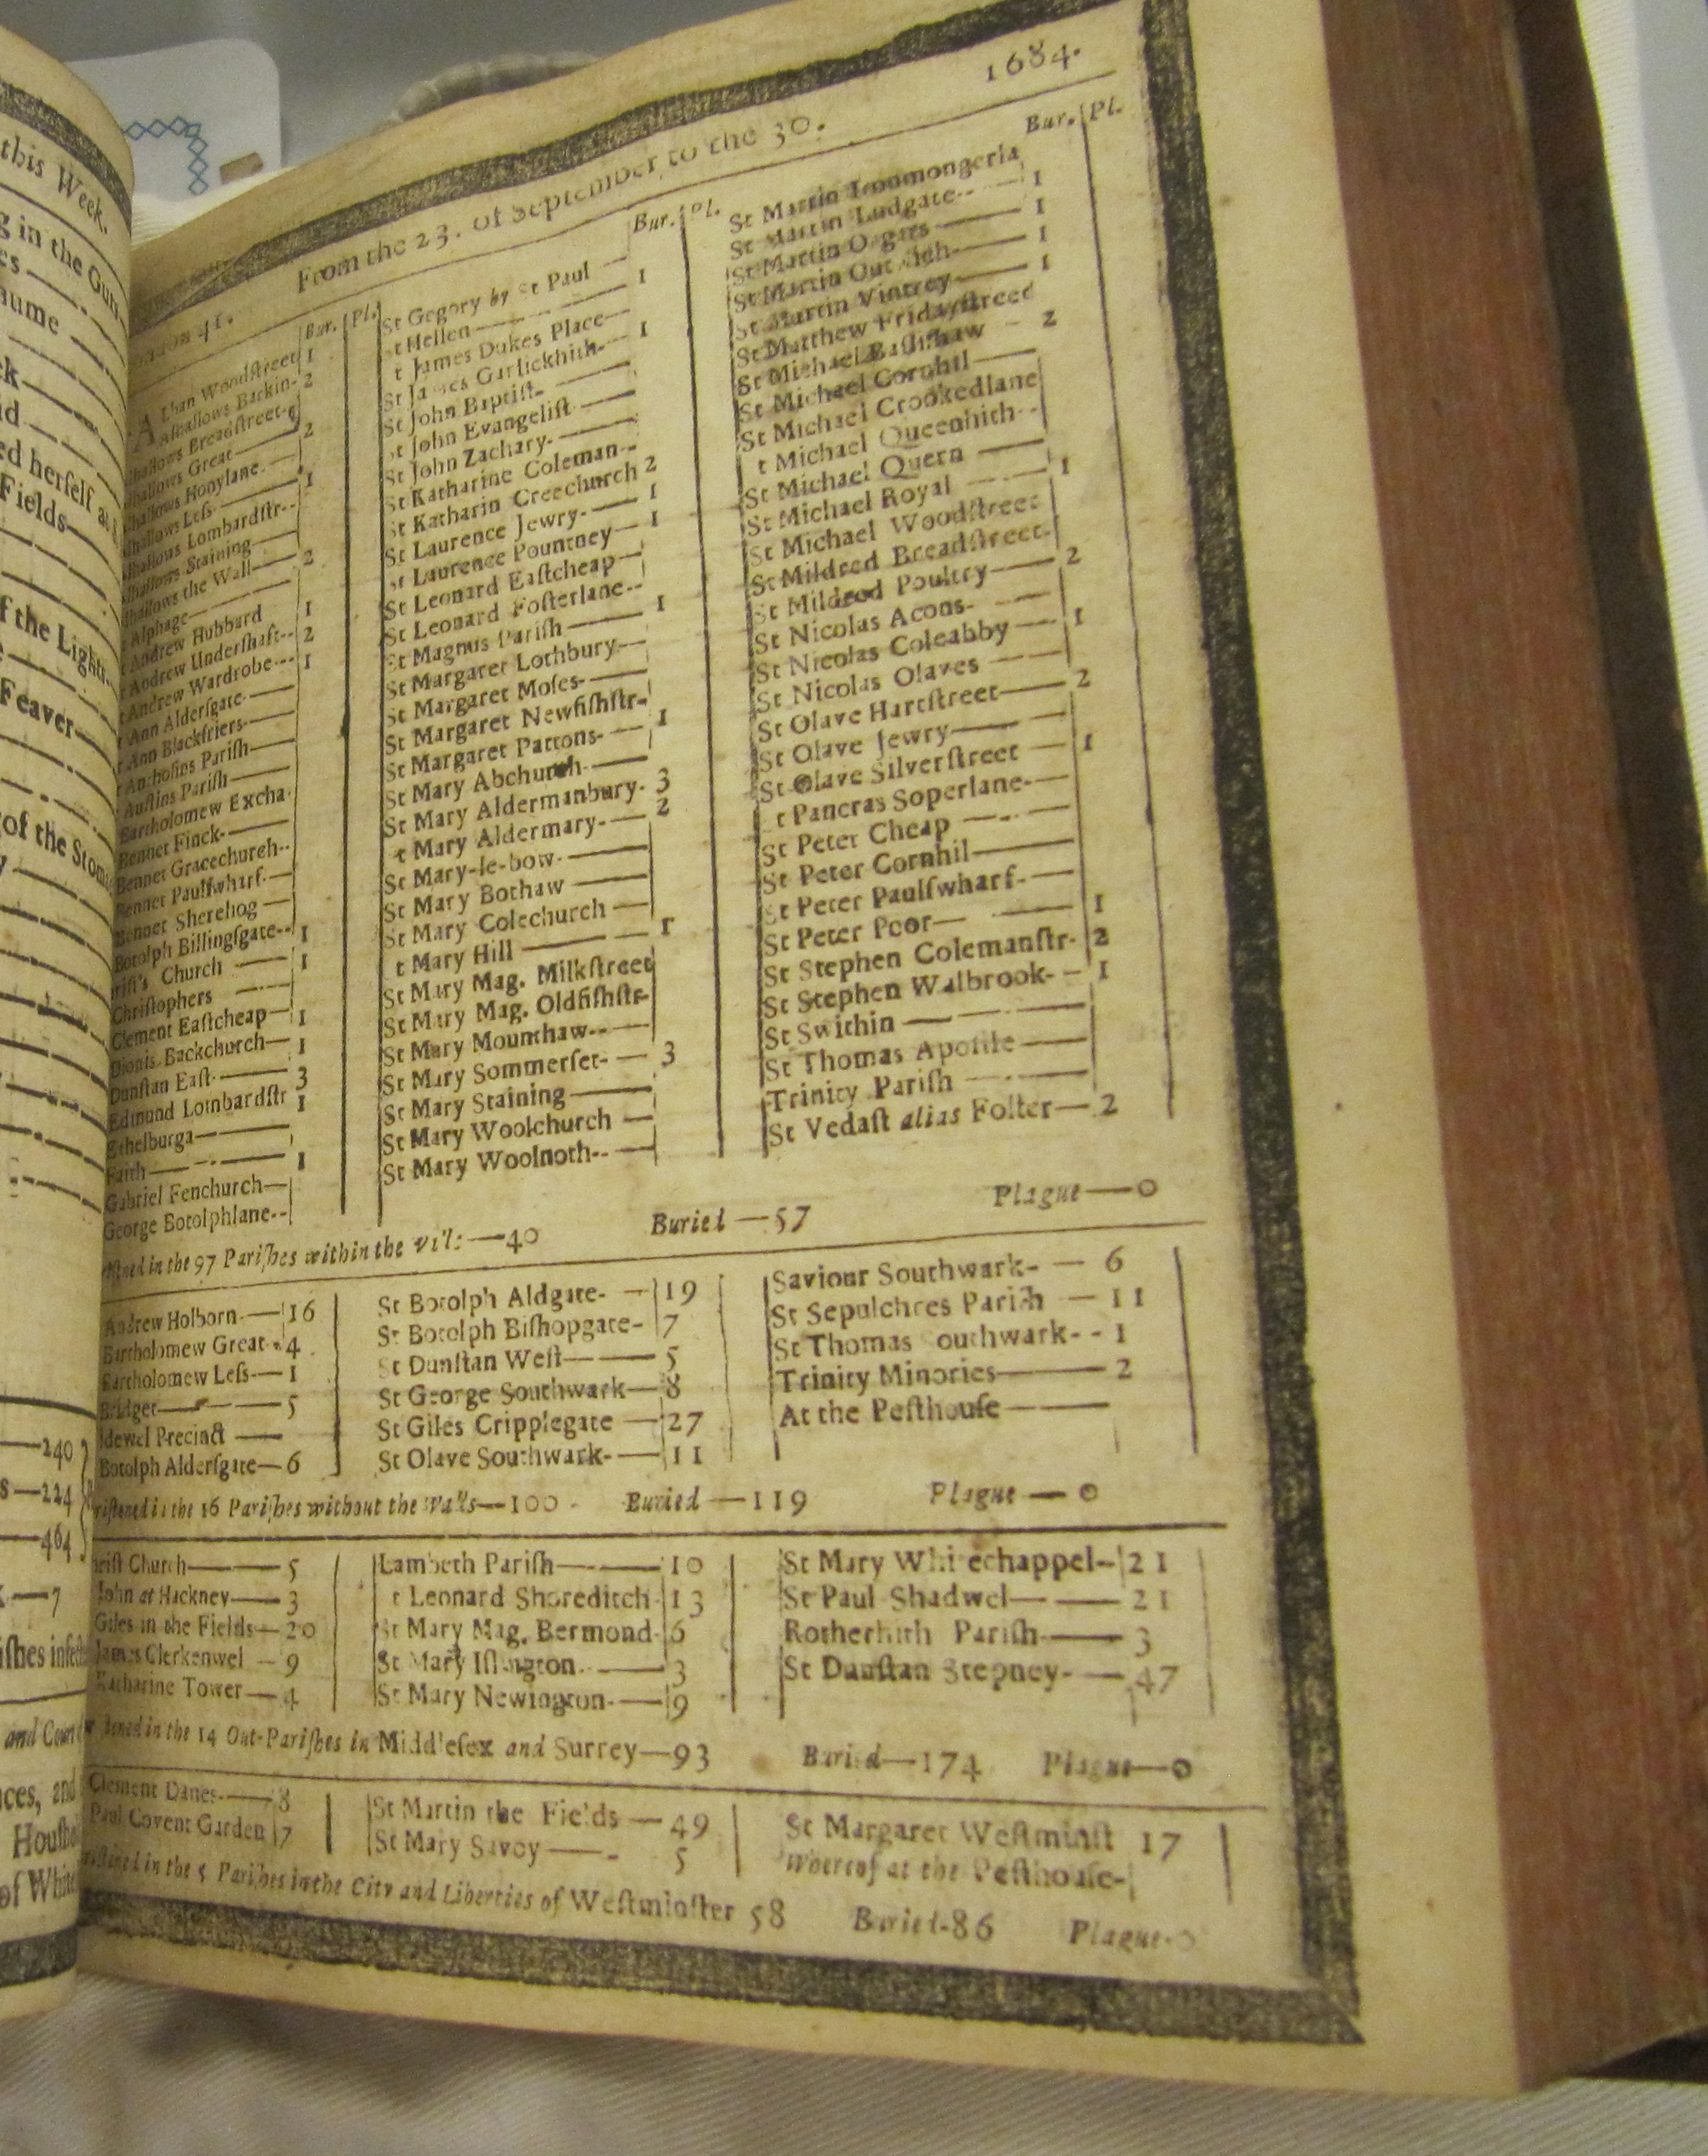 this Week.
g in the Gu
aume
ed herself a
Fields
f the Light
Feaver
of the Stom
—240
s—224
—464
—7
and Cou
ces, and
of Whi
1684.
From the 23. of September, to the 30.
Bur. Pl.
Alban Woodſtreet 1
Alhallows Barkin- 2
hallows Breadſtreet-
hallows Great— 2
hallows Honylane
hallows Leſs— 1
hallows Lombardſtr--
hallows Staining—
hallows the Wall— 2
Alphage—
Andrew Hubbard 1
Andrew Underſhaft-- 2
Andrew Wardrobe--- 1
Ann Alderſgate-—
Ann Blackfriers-—
Antholins Pariſh—
Auſtins Pariſh —
Bartholomew Excha
Bennet Finck-—
Bennet Gracechurch--
Bennet Paulſwharf-—
Bennet Sherehog —
Botolph Billingſgate-- 1
riſt's Church — 1
Chriſtophers —
Clement Eaſtcheap— 1
Dionis Backchurch— 1
Dunſtan Eaſt-— 3
Edmund Lombardſtr 1
Ethelburga—
Faith— 1
Gabriel Fenchurch—
George Botolphlane--
Bur. Pl.
St Gegory by St Paul —
t Hellen— 1
t James Dukes Place—
St James Garlickhith- 1
St John Baptiſt-—
St John Evangeliſt —
St John Zachary-—
St Katharine Coleman--
St Katharin Creechurch 2
St Laurence Jewry-— 1
St Laurence Pountney— 1
St Leonard Eaſtcheap—
St Leonard Foſterlane--
St Magnus Pariſh — 1
St Margaret Lothbury—
St Margaret Moſes-—
St Margaret Newfiſhſtr-
St Margaret Pattons-— 1
St Mary Abchurch-—
St Mary Aldermanbury- 3
t Mary Aldermary-— 2
St Mary-le-bow-—
St Mary Bothaw —
St Mary Colechurch —
t Mary Hill — 1
St Mary Mag. Milkſtreet
St Mary Mag. Oldfiſhſtr-
St Mary Mounthaw--—
St Mary Sommerſet-— 3
St Mary Staining—
St Mary Woolchurch —
St Mary Woolnoth--—
Bur. Pl.
St Martin Ironmongerla
St Martin Ludgate-- 1
St Martin Orgars— 1
St Martin Out ich— 1
St Martin Vintrey— 1
St Matthew Fridayſtreet
St Michael Baſſiſhaw - 2
St Michael Cornhil—
St Michael Crookedlane
t Michael Queenhith--
St Michael Quern —
St Michael Royal — 1
St Michael Woodſtreet
St Mildred Breadſtreet-
St Mildred Poultry— 2
St Nicolas Acons-—
St Nicolas Coleabby — 1
St Nicolas Olaves —
St Olave Hartſtreet— 2
St Olave Jewry—
St Olave Silverſtreet — 1
t Pancras Soperlane-—
St Peter Cheap —
St Peter Cornhil—
St Peter Paulſwharf-—
St Peter Poor— 1
St Stephen Colemanſtr- 2
St Stephen Walbrook-— 1
St Swithin —
St Thomas Apoſtle—
Trinity Pariſh —
St Vedaſt alias Foſter— 2
ſtned in the 97 Pariſhes within the —40 Buried —57 Plague—0
Andrew Holborn-—16
Bartholomew Great-4
Bartholomew Leſs-—1
Bridget—5
idewel Precinct —
Botolph Alderſgate—6
St Botolph Aldgate-—19
St Botolph Biſhopgate-7
St Dunſtan Weſt—5
St George Southwark—8
St Giles Cripplegate —27
St Olave Southwark-—11
Saviour Southwark-— 6
St Sepulchres Pariſh —11
St Thomas outhwark-- 1
Trinity Minories— 2
At the Peſthouſe—
riſtened in the 16 Pariſhes without the Walls—100 - Buried —119 Plague —0
hriſt Church—5
John at Hackney—3
Giles in the Fields—20
James Clerkenwel —9
Katharine Tower—4
Lambeth Pariſh—10
t Leonard Shoreditch-13
St Mary Mag. Bermond-6
St Mary Iſlington—3
St Mary Newington-—9
St Mary Whi echappel-21
St Paul Shadwel—21
Rotherhith Pariſh—3
St Dunſtan Stepney-—47
ſtened in the 14 Out-Pariſhes in Middleſex and Surrey—93 Buried—174 Plague—0
Clement Danes-—8
Paul Covent Garden 7
St Martin the Fields —49
St Mary Savoy— 5
St Margaret Weſtminſt 17
Whereof at the Peſthouſe-
ſtened in the 5 Pariſhes in the City and Liberties of Weſtminſter 58 Buried-86 Plague-0